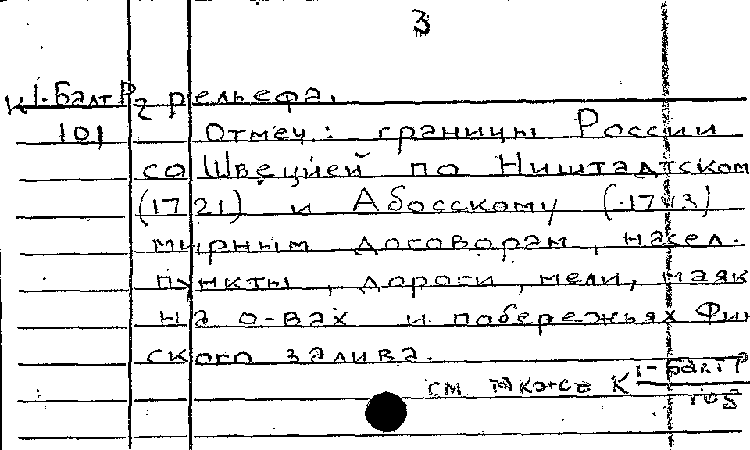 3
К 1-БалтР 2 рельефа.
101 Отмеч.: границы России
со Швецией по Ништадтском
(1721) и Абосскому (1743)
мирным договорам, насел.
пункты, дороги, мели, маяк
на о-вах и побережьях Фин
ского залива.
см также К 1-БалтР
105